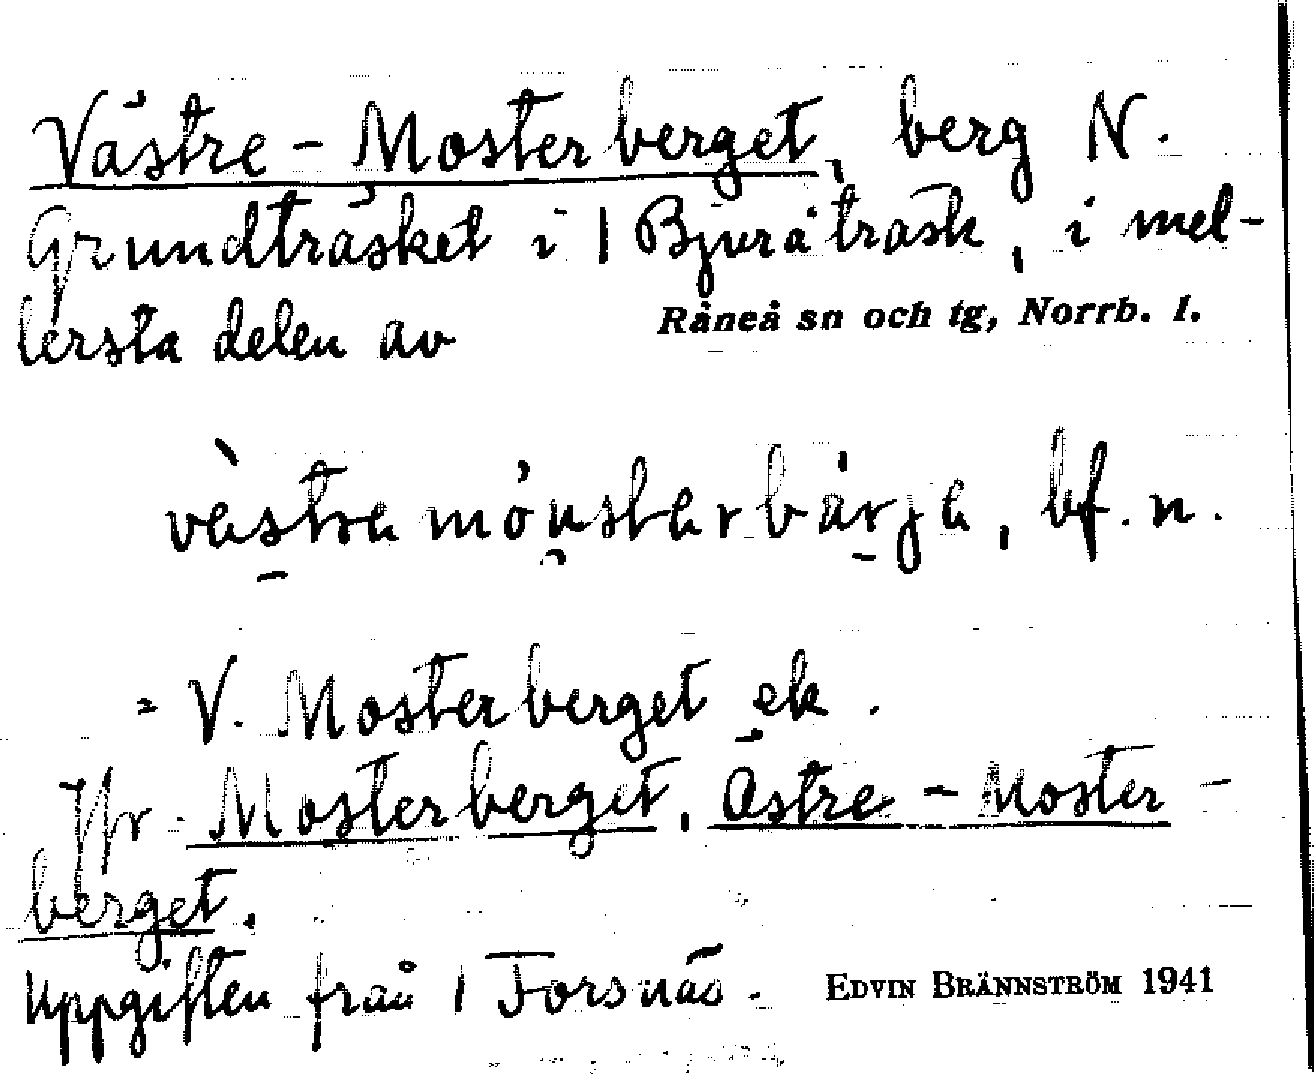 Västre-Mosterberget, berg N.
Grundträsket i 1 Bjuråträsk, i mel-
lersta delen av Råneå sn och tg, Norrb. l.
= V. Mosterberget ek.
Jfr Mosterberget, Östre-Moster-
berget.
Uppgiften från 1 Forsnäs. EDVIN BRÄNNSTRÖM 1941